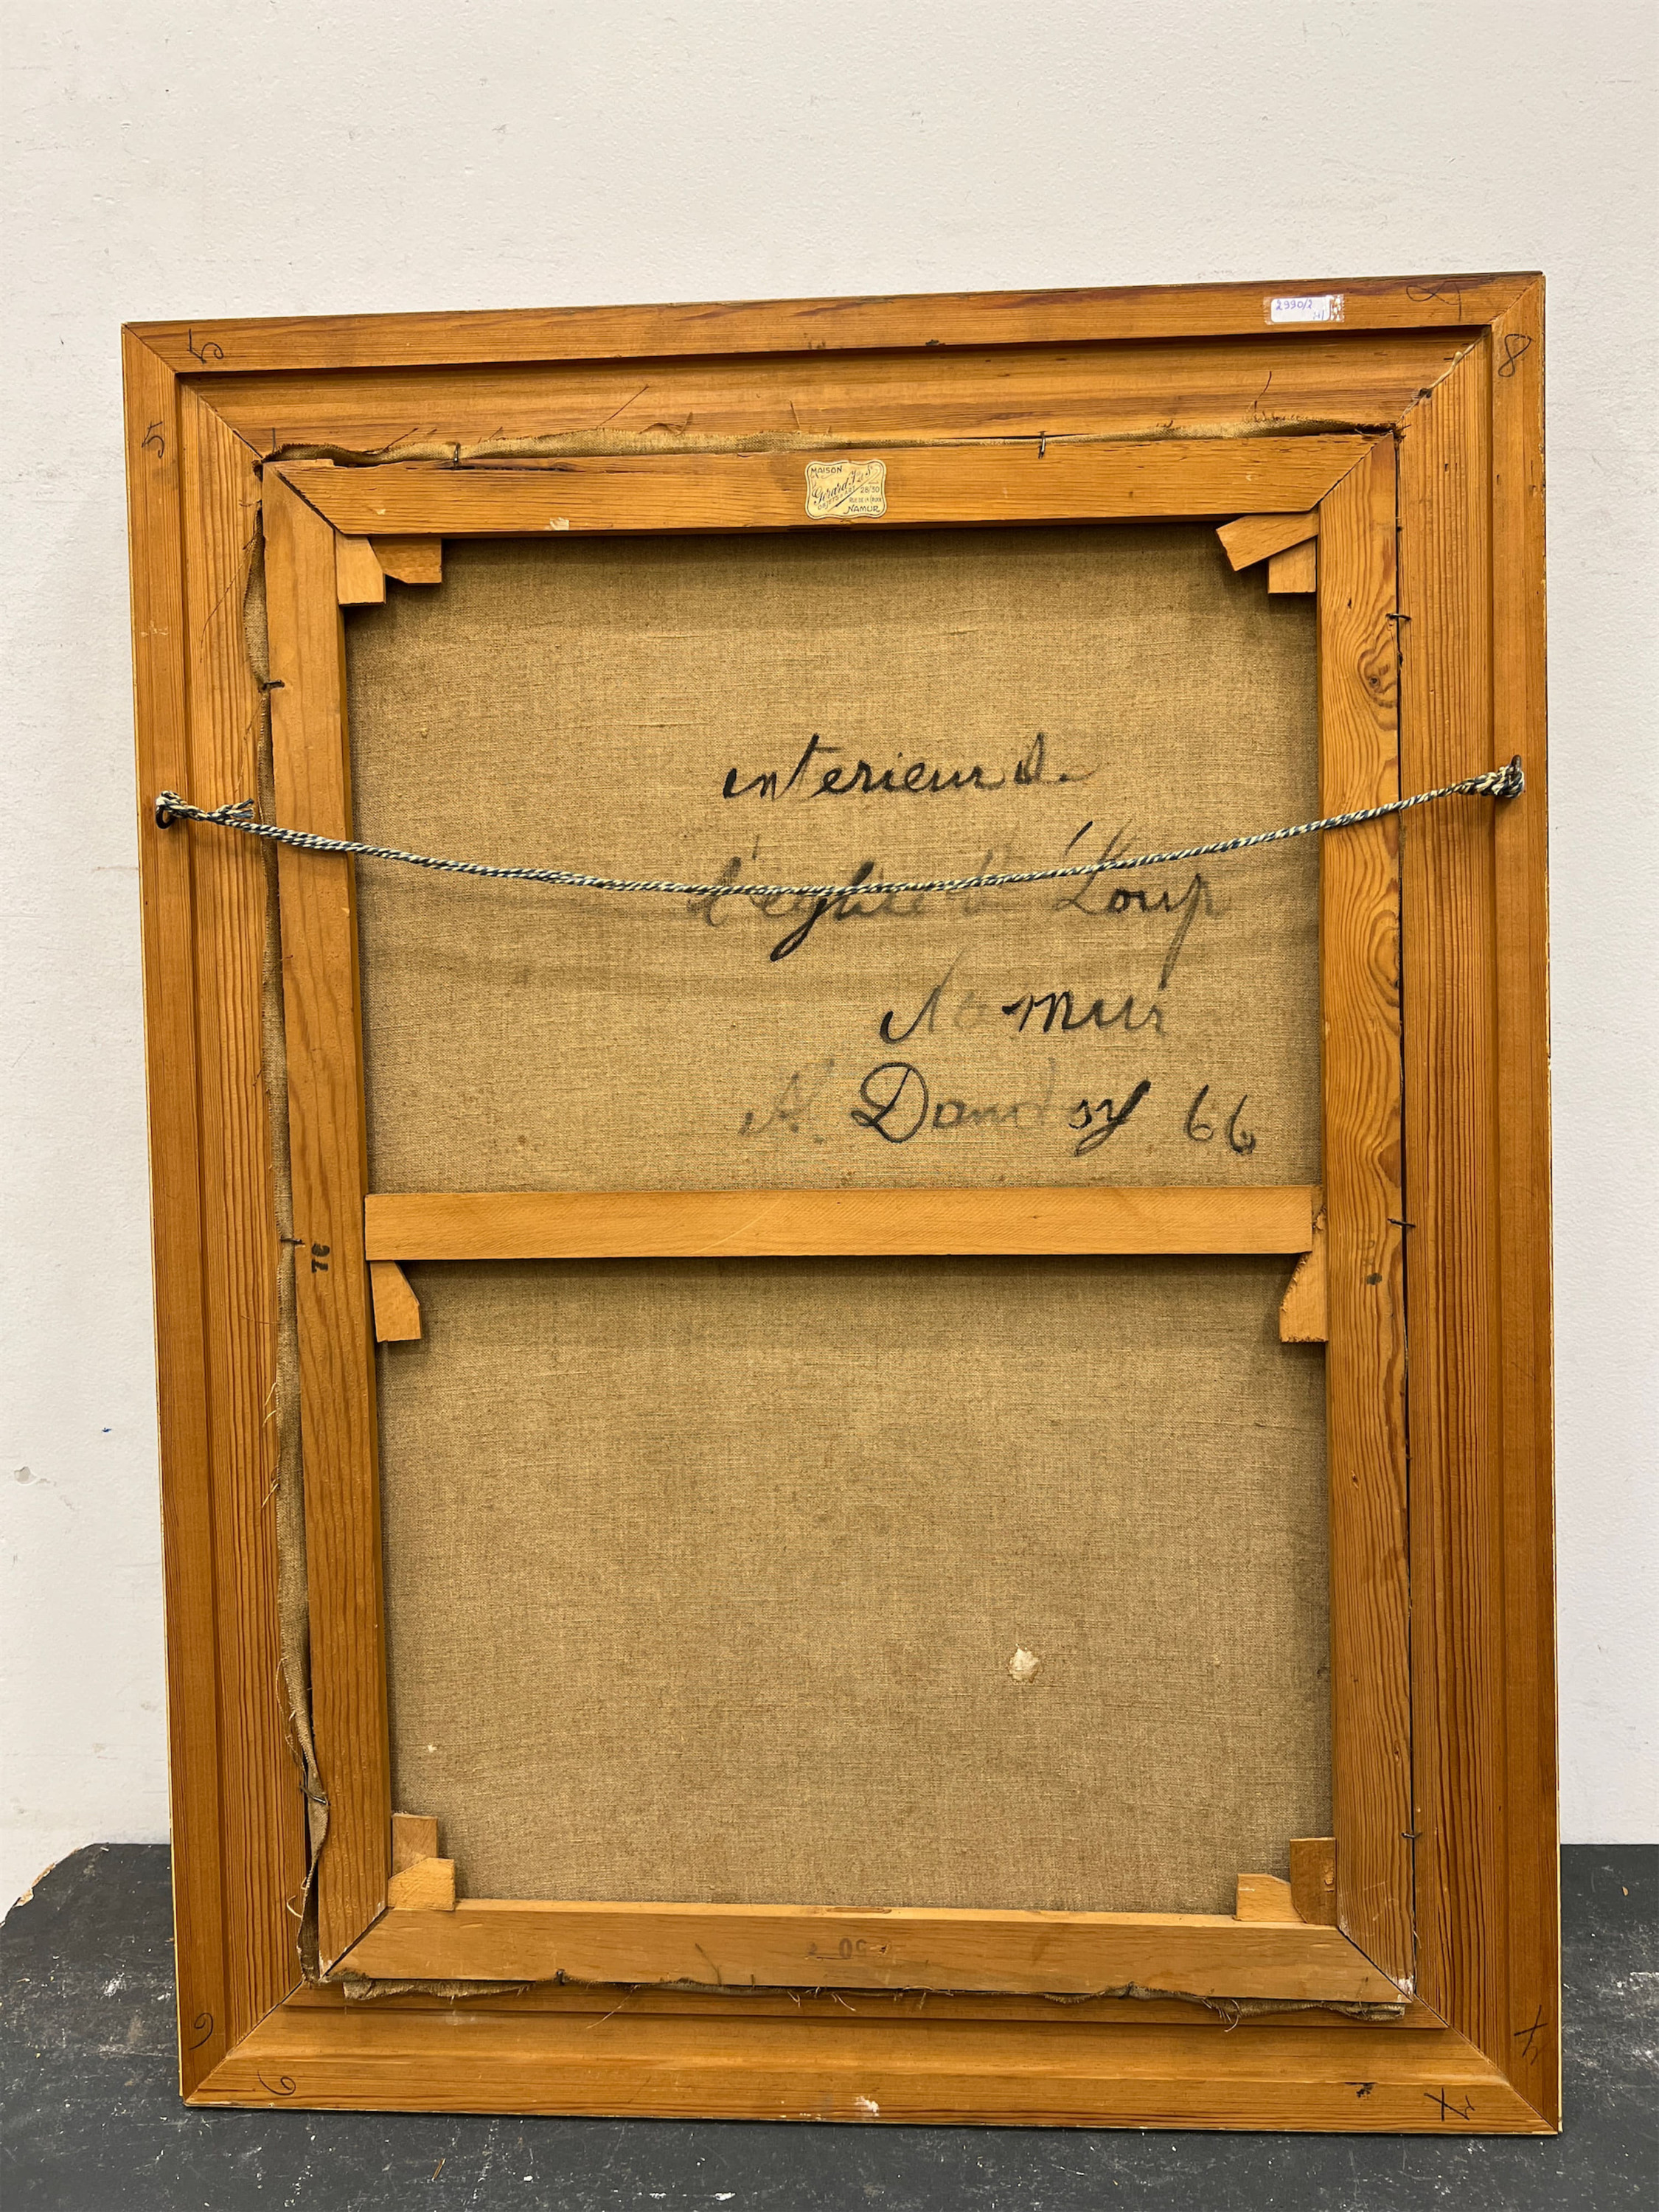 2990/2
8
5
8
5
MAISON
Gérard
28/30
NAMUR
interieur de
l'eglise St Loup
Namur
A. Dandoy 66
6
6